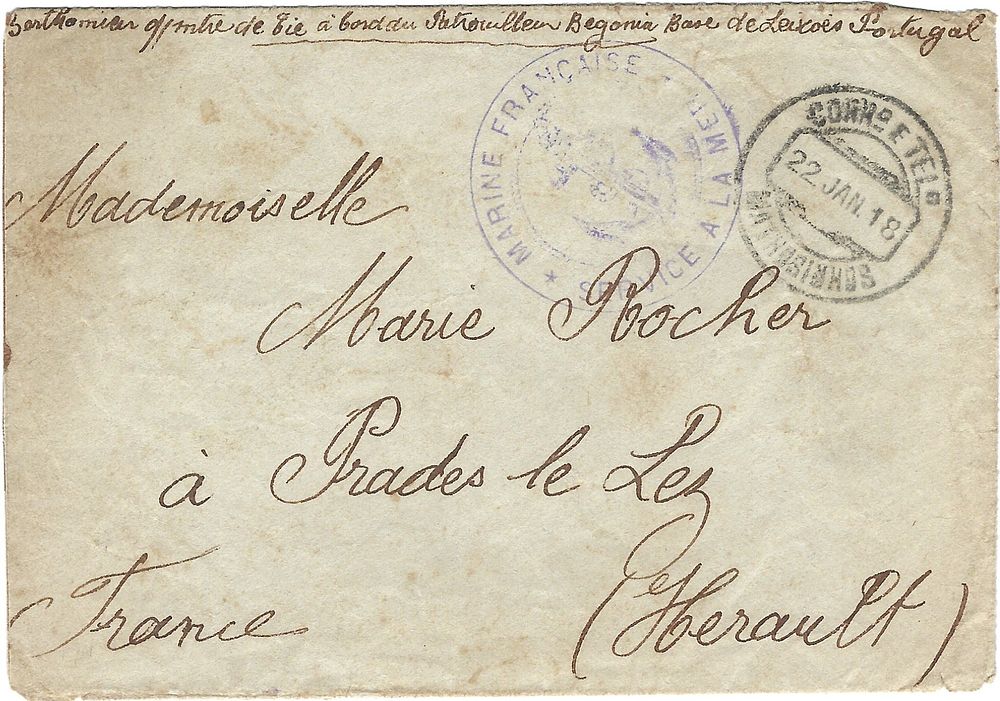 Barthomieu qr mtre de Tie à bord du Patrouilleur Begonia Base de Leixoès Portugal
★ MARINE FRANÇAISE ★ SERVICE A LA MER
CORRO E TELG
22. JAN. 18
Mademoiselle
Marie Rocher
à Prades le Lez
France (Herault)